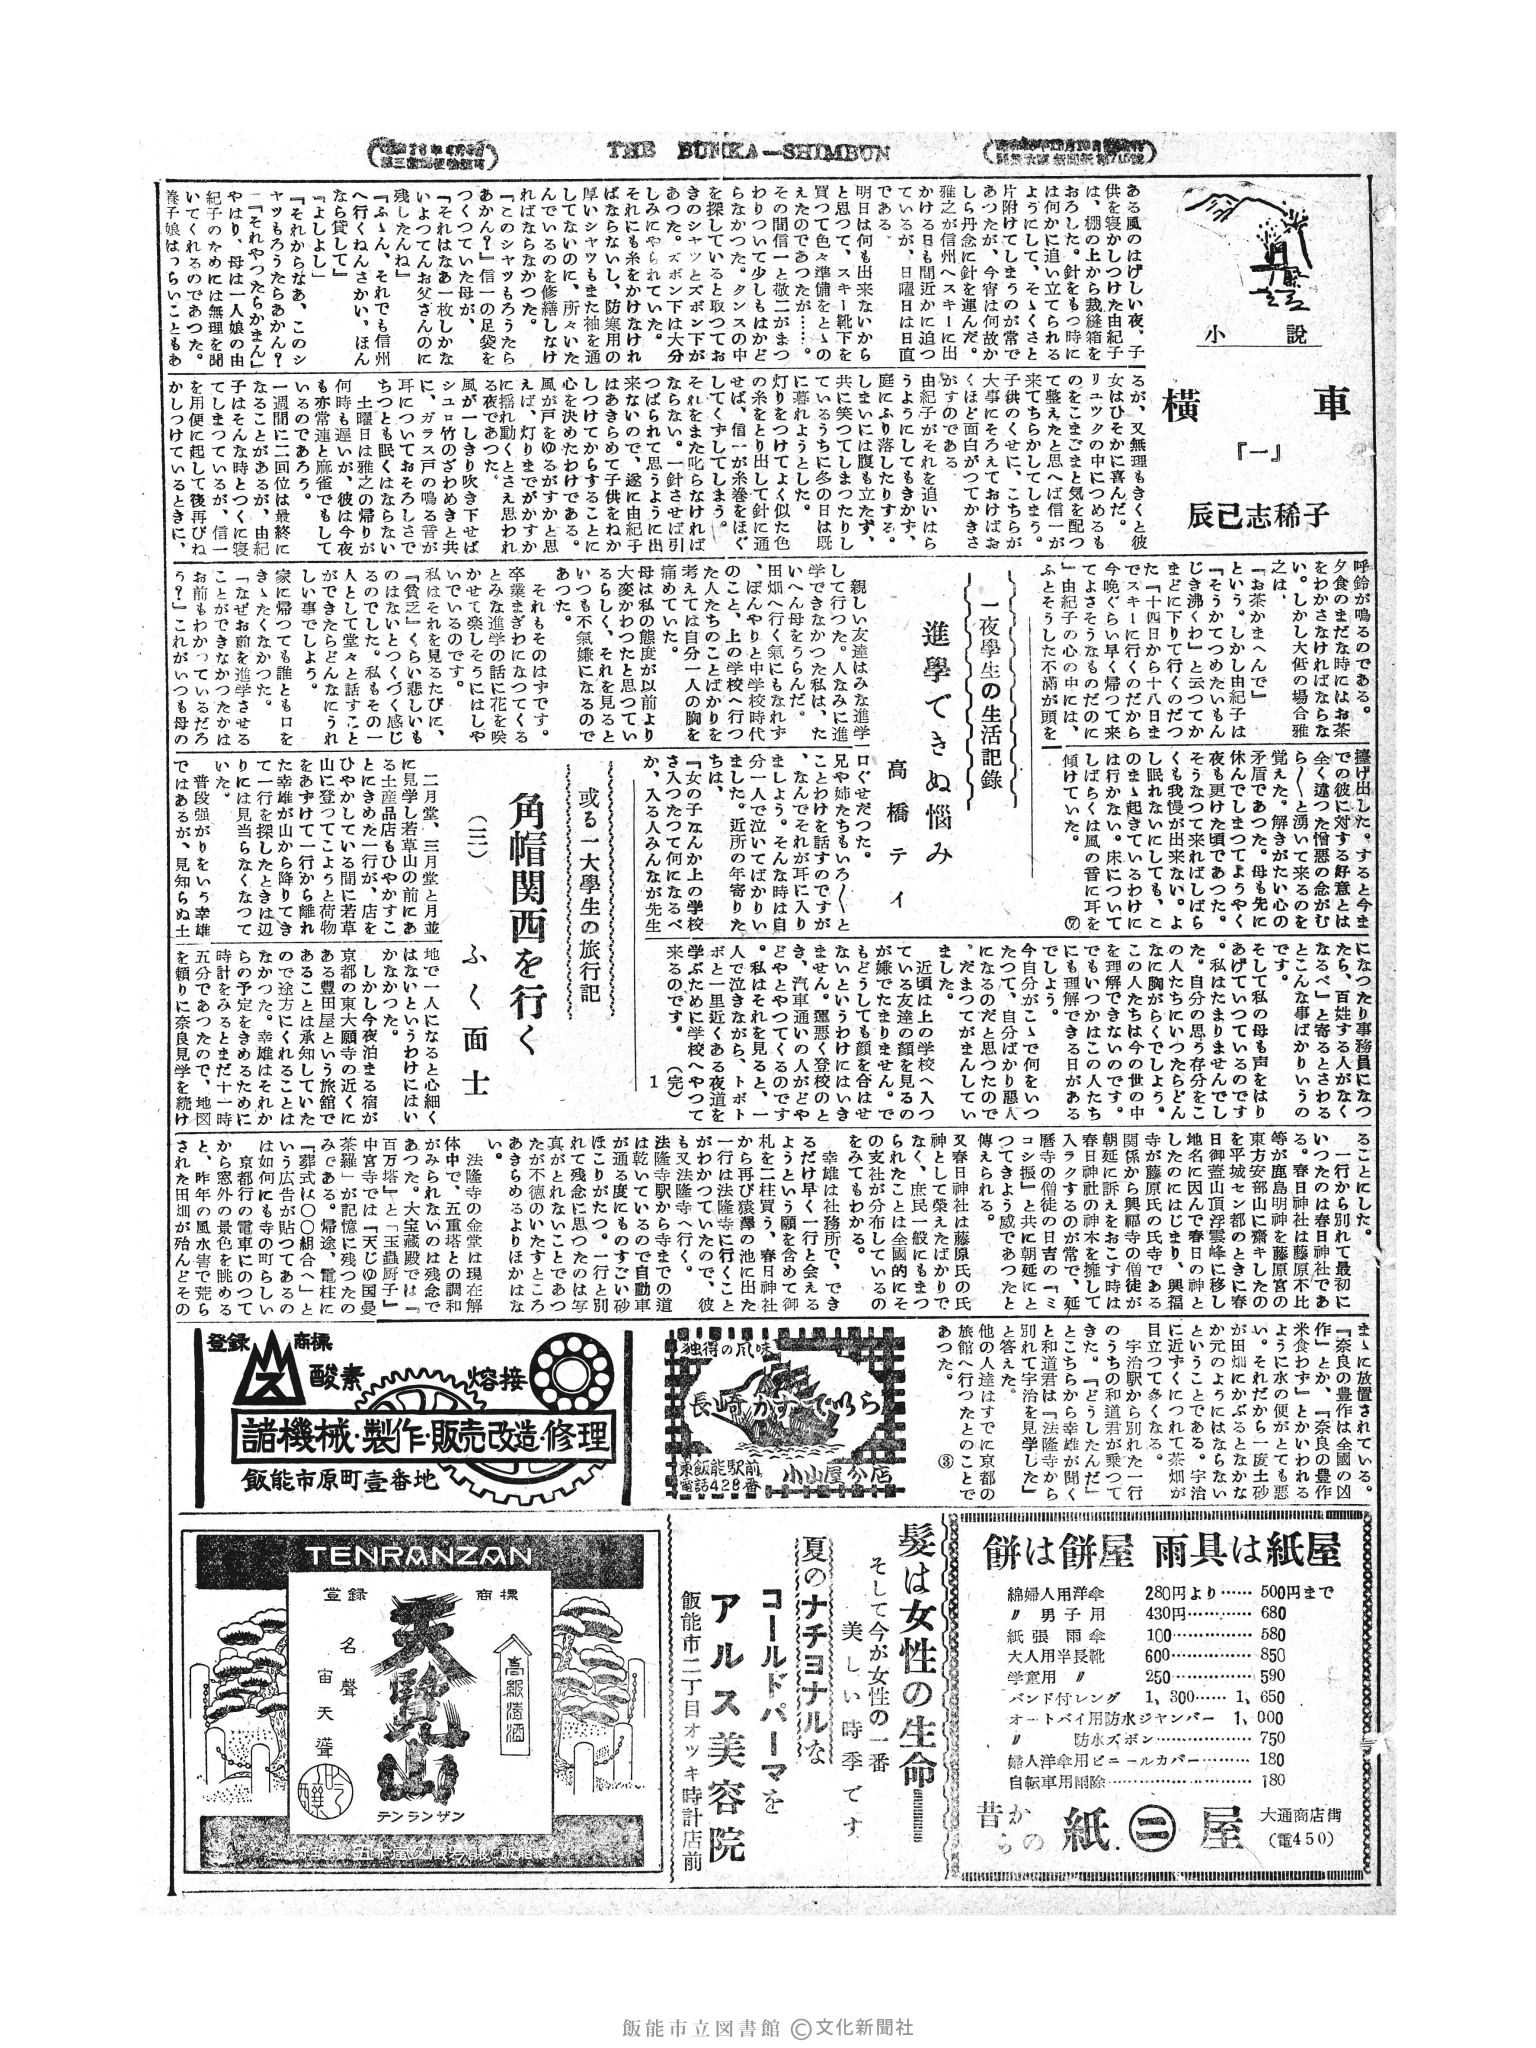 THE BUNKA—SHIMBUN
小説
横車
『一』
辰己志稀子
ある風のはげしい夜、子
供を寝かしつけた由紀子
は、棚の上から裁縫箱を
おろした。針をもつ時に
は何かに追い立てられる
ようにして、そゝくさと
片附けてしまうのが常で
あつたが、今宵は何故か
しら丹念に針を運んだ。
雅之が信州へスキーに出
かける日も間近かに迫つ
ているが、日曜日は日直
である。
明日は何も出来ないから
と思つて、スキー靴下を
買つて色々準備をとゝの
えたのであつたが……。
その間信一と敬二がまつ
わりついて少しもはかど
らなかつた。タンスの中
を探していると取つてお
きのシャツとズボン下が
あつた。ズボン下は大分
しみにやられていた。
それにも糸をかけなけれ
ばならないし、防寒用の
厚いシャツもまた袖を通
してないのに、所々いた
んでいるのを修繕しなけ
ればならなかつた。
『このシャツもろうたら
あかん？』信一の足袋を
つくつていた母が、
『それはなあ一枚しかな
いよつてんお父さんのに
残したんね』
『ふゝん、それでも信州
へ行くねんさかい、ほん
なら貸して』
『よしよし』
『それからなあ、このシ
ヤツもろうたらあかん？
『それやつたらかまん』
やはり、母は一人娘の由
紀子のためには無理を聞
いてくれるのであつた。
養子娘はつらいこともあ
るが、又無理もきくと彼
女はひそかに喜んだ。
リュックの中につめるも
のをこまごまと気を配つ
て整えたと思へば信一が
来てちらかしてしまう。
子供のくせに、こちらが
大事にそろえておけばお
くほど面白がつてかきさ
がすのである。
由紀子がそれを追いはら
うようにしてもきかず、
庭にふり落したりする。
しまいには腹も立たず、
共に笑つてしまつたりし
ているうちに冬の日は既
に暮れようとした。
灯りをつけてよく似た色
の糸をとり出して針に通
せば、信一が糸巻をほぐ
してくずしてしまう。
それをまた叱らなければ
ならない。一針させば引
つばられて思うように出
来ないので、遂に由紀子
はあきらめて子供をねか
しつけてからすることに
心を決めたわけである。
風が戸をゆるがすかと思
えば、灯りまでがかすか
に揺れ動くとさえ思われ
る夜であつた。
風が一しきり吹き下せば
シュロ竹のざわめきと共
に、ガラス戸の鳴る音が
耳についておそろしさで
ちつとも眠くはならない
土曜日は雅之の帰りが
何時も遅いが、彼は今夜
も亦常連と麻雀でもして
いるのであろう。
一週間に二回位は最終に
なることがあるが、由紀
子はそんな時とつくに寝
てしまつているが、信一
を用便に起して後再びね
かしつけているときに、
呼鈴が鳴るのである。
夕食のまだな時にはお茶
をわかさなければならな
い。しかし大低の場合雅
之は、
『お茶かまへんで』
という。しかし由紀子は
『そうかてつめたいもん
じき沸くわ』と云つてか
まどに下りて行くのだつ
た『十四日から十八日ま
でスキーに行くのだから
今晩ぐらい早く帰つて来
てよさそうなものだのに
』由紀子の心の中には、
ふとそうした不満が頭を
擡げ出した。すると今ま
での彼に対する好意とは
全く違つた憎悪の念がむ
ら〳〵と湧いて来るのを
覚えた。解きがたい心の
矛盾であつた。母も先に
休んでしまつてようやく
夜も更けた頃であつた。
そうなつて来ればしばら
くも我慢が出来ない。よ
し眠れないにしても、こ
のまゝ起きているわけに
は行かない。床について
しばらくは風の音に耳を
傾けていた。
一夜學生の生活記錄
進學できぬ惱み
高橋テイ
親しい友達はみな進学
して行つた。人なみに進
学できなかつた私は、た
いへん母をうらんだ。
田畑へ行く氣にもなれず
、ぼんやりと中学校時代
のこと、上の学校へ行つ
た人たちのことばかりを
考えては自分一人の胸を
痛めていた。
母は私の態度が以前より
大変かわつたと思つてい
るらしく、それを見ると
いつも不氣嫌になるので
あつた。
それもそのはずです。
卒業まぎわになつてくる
とみな進学の話に花を咲
かせて楽しそうにはしや
いでいるのです。
私はそれを見るたびに、
『貧乏』くらい悲しいも
のはないとつくづく感じ
るのでした。私もその一
人として堂々と話すこと
ができたらどんなにうれ
しい事でしよう。
家に帰つても誰とも口を
きゝたくなかつた。
「なぜお前を進学させる
ことができなかつたかは
お前もわかつているだろ
う？」これがいつも母の
口ぐせだつた。
兄や姉たちもいろ〳〵と
ことわけを話すのですが
、なんでそれが耳に入り
ましよう。そんな時は自
分一人で泣いてばかりい
ました。近所の年寄りた
ちは、
『女の子なんか上の学校
さ入つたつて何になるべ
か、入る人みんなが先生
になつたり事務員になつ
たら、百姓する人がなく
なるべ」と寄るとさわる
とこんな事ばかりいうの
です。
そして私の母も声をはり
あげていつているのです
。私はたまりませんでし
た。自分の思う存分をこ
の人たちにいつたらどん
なに胸がらくでしよう。
この人たちは今の世の中
を理解できないのです。
でもいつかはこの人たち
にも理解できる日がある
でしよう。
今自分がこゝで何をいつ
たつて、自分ばかり悪人
になるのだと思つたので
、だまつてがまんしてい
ました。
近頃は上の学校へ入つ
ている友達の顔を見るの
が嫌でたまりません。で
もどうしても顔を合はせ
ないというわけにはいき
ません。運悪く登校のと
き、汽車通いの人がどや
どやとやつてくるのです
。私はそれを見ると、一
人で泣きながら、トボト
ボと一里近くある夜道を
学ぶために学校へやつて
来るのです。
（完）
或る一大學生の旅行記
角帽関西を行く
（三）
ふく面士
二月堂、三月堂と月並
に見学し若草山の前にあ
る土産品店もひやかすこ
とにきめた一行が、店を
ひやかしている間に若草
山に登つてこようと荷物
をあずけて一行から離れ
た幸雄が山から降りてき
て一行を探したときは辺
りには見当らなくなつて
いた。
普段強がりをいう幸雄
ではあるが、見知らぬ土
地で一人になると心細く
はないというわけにはい
かなかつた。
しかし今夜泊まる宿が
京都の東大願寺の近くに
ある豊田屋という旅館で
あることは承知していた
ので途方にくれることは
なかつた。幸雄はそれか
らの予定をきめるために
時計をみるとまだ十一時
五分であつたので、地図
を頼りに奈良見学を続け
ることにした。
一行から別れて最初に
いつたのは春日神社であ
る。春日神社は藤原不比
等が鹿島明神を藤原宮の
東方安部山に齋キしたの
を平城セン都のときに春
日御蓋山頂浮雲峰に移し
地名に因んで春日の神と
したのにはじまり、興福
寺が藤原氏の氏寺である
関係から興福寺の僧徒が
朝延に訴えをおこす時は
春日神社の神木を擁して
入ラクするのが常で、延
暦寺の僧徒の日吉の『ミ
コシ振』と共に朝延にと
つてきよう威であつたと
傳えられる。
又春日神社は藤原氏の氏
神として榮えたばかりで
なく、庶民一般にもまつ
られたことは全國的にそ
の支社が分布しているの
をみてもわかる。
幸雄は社務所で、でき
るだけ早く一行と会える
ようという願を含めて御
札を二柱買う、春日神社
から再び猿澤の池に出た
一行は法隆寺に行くこと
がわかつていたので、彼
も又法隆寺へ行く。
法隆寺駅から寺までの道
は乾いているので自動車
が通る度にものすごい砂
ほこりがたつ。一行と別
れて残念に思つたのは写
真がとれないことであつ
たが不徳のいたすところ
あきらめるよりほかはな
い。
法隆寺の金堂は現在解
体中で、五重塔との調和
がみられないのは残念で
あつた。大宝蔵殿では『
百万塔』と「玉蟲厨子」
中宮寺では『天じゆ国曼
茶羅」が記憶に残つたの
みである。帰途、電柱に
『葬式は〇〇組合へ』と
いう広告が貼つてあるの
は如何にも寺の町らしい
京都行の電車にのつて
から窓外の景色を眺める
と、昨年の風水害で荒ら
された田畑が殆んどその
まゝに放置されている。
『奈良の豊作は全國の凶
作』とか、『奈良の豊作
米食わず』とかいわれる
ように水の便がとても悪
い。それだから一度土砂
が田畑にかぶるとなかな
か元のようにはならない
ということである。宇治
に近ずくにつれて茶畑が
目立つて多くなる。
宇治駅から別れた一行
のうちの和道君が乗つて
きた。『どうしたんだ』
とこちらから幸雄が聞く
と和道君は『法隆寺から
別れて宇治を見学した』
と答えた。
他の人達はすでに京都の
旅館へ行つたとのことで
あつた。
③
登録 商標
酸素 熔接
諸機械・製作・販売改造・修理
飯能市原町壹番地
独得の風味
長崎かすていら
東飯能駅前
電話428番
小山屋分店
TENRANZAN
登録 商標
天覽山
名聲宙天
テンランザン
髪は女性の生命
そして今が女性の一番
美しい時季です
夏のナチヨナルな
コールドパーマを
アルス美容院
飯能市二丁目オツキ時計店前
餅は餅屋 雨具は紙屋
綿婦人用洋傘 280円より……500円まで
〃 男子用 430円…………680
紙張雨傘 100……………580
大人用半長靴 600……………850
学童用 〃 250……………590
バンド付レング 1,300……1,650
オートバイ用防水ジャンバー 1,000
〃 防水ズボン………………750
婦人洋傘用ビニールカバー………180
自転車用雨除…………………………180
昔からの
紙㊁屋
大通商店街
（電450）
飯能市立図書館 ©文化新聞社